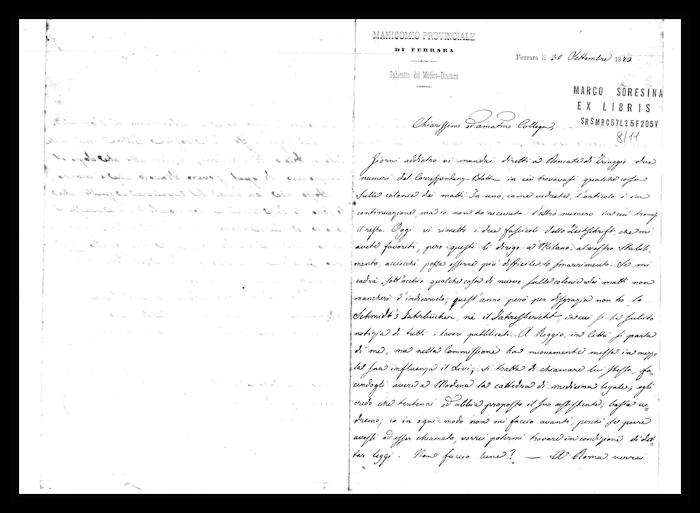 MANICOMIO PROVINCIALE
DI FERRARA
Gabinetto del Medico-Direttore
Ferrara li 30 Settembre 18
MARCO SORESINA
EX LIBRIS
SRSMRC57L25F205V
8/11
Chiarissimo ed amatmo Collega,
Giorni addietro vi mandai diretti a Roncate di Triuggio due
numeri del Correspondenz-Blatt in cui trovavasi qualche cosa
sulle colonie dei matti. In uno, come vedrete, l'articolo è in
continuazione, ma io non ho ricevuto l'altro numero in cui trovasi
il resto. Oggi vi rimetto i due fascicoli dello Zeitschrift che mi
avete favoriti, però questi li dirigo a Milano, al vostro Stabili-
mento, acciocché possa essere più difficile lo smarrimento. Se mi
cadrà sott'occhio qualche cosa di nuovo sulle colonie dei matti non
mancherò d'indicarvelo; quest'anno però per disgrazia non ho lo
Schmidt's Jahrbücher, nè il Jahresbericht in cui si ha subito
notizia di tutti i lavori pubblicati. A Reggio, in città si parla
di me, ma nella Commissione ha nuovamente messa in mezzo
la sua influenza il Livi; si tratta di chiamare lui stesso, fa-
cendogli avere a Modena la cattedra di medicina legale; egli
credo che tentenni ed abbia proposto il suo assistente; basta ve-
dremo; io in ogni modo non mi faccio avanti, perchè se pure
avessi ad esser chiamato, vorrei potermi trovare in condizione di det-
tar leggi. Non faccio bene? — A Roma vevrei